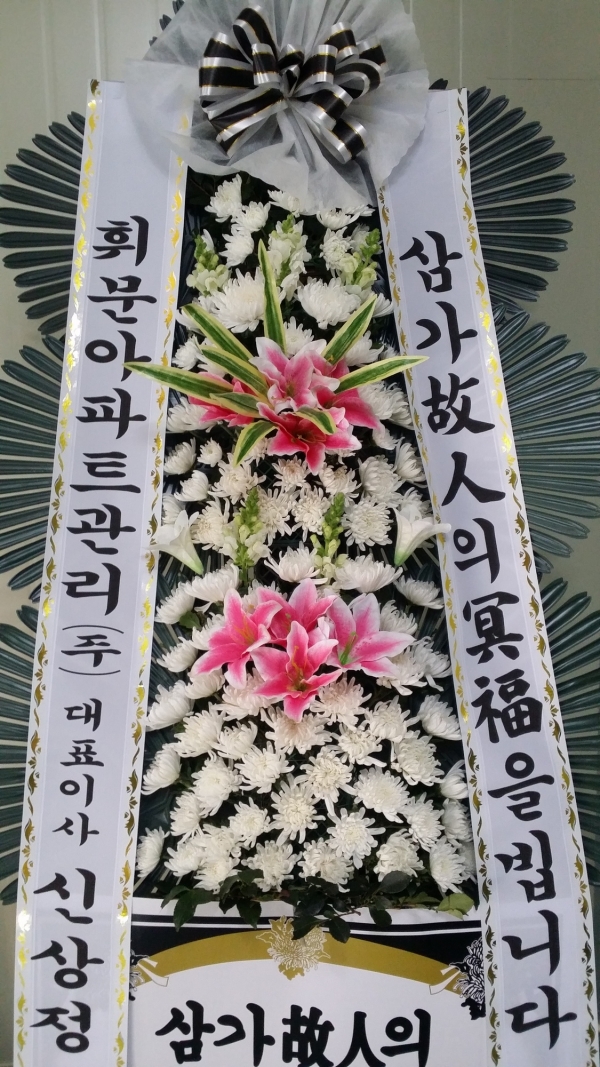 삼가故人의冥福을빕니다
휘문아파트관리(주) 대표이사 신상정
삼가故人의